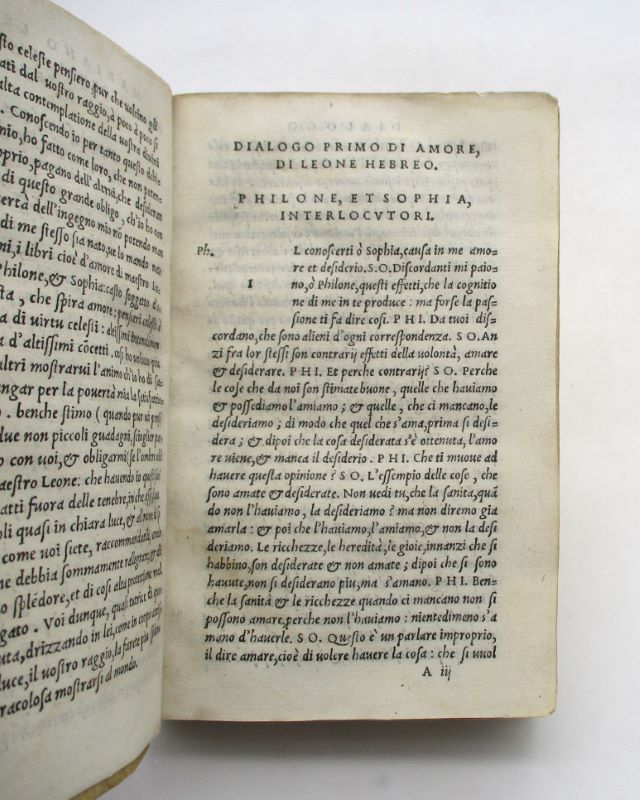 sto celeste pensiero, pur che uolcino gli
ati dal uostro raggio, à poco à poco si
alta contemplatione della uostra diuini
. Conoscendo io per tanto questo debi-
nio, ho fatto come loro, che non poten-
oprio, pagano dell'altrui, che desideran
di questo grande obligo, ch'io ho con
uertà dell'ingegno mio nō potendo man
di me stesso sia nato, ue lo mando nato
ni, i libri cioè d'amore di maestro Le-
Philone, & Sophia: casto soggetto d'a-
sta, che spira amore: pensieri celesti à
a di uirtu celesti: altissimi
d'altissimi cōcetti,
altri mostrarui l'animo ch'io ho di
ungar per la pouertà mia la satisfattion
. benche stimo (quando pur mi
due non piccoli guadagni,
o con uoi, & obligarmi se l'ombre
aestro Leone: che hauendo io questi
atti fuora delle tenebre, in che
oli quasi in chiara luce, &
come uoi siete, raccommandati,
ne debbia sommamente rallegrarsi,
o splēdore, et di cosi alta protettione
gato. Voi dunque, qual
uta, drizzando in lei, come in corpo
luce, il uostro raggio, la farete piu
racolosa mostrarsi al mondo.
DIALOGO PRIMO DI AMORE,
DI LEONE HEBREO.
PHILONE, ET SOPHIA,
INTERLOCVTORI.
Ph. L conoscerti ò Sophia, causa in me amo=
re et desiderio. S.O. Discordanti mi paio=
I no, ò Philone, questi effetti, che la cognitio
ne di me in te produce: ma forse la pas=
sione ti fa dire cosi. P HI. Da tuoi dis=
cordano, che sono alieni d'ogni correspondenza. S O. An
zi fra lor stessi son contrarij effetti della uolontà, amare
& desiderare. P HI. Et perche contrarij? S O. Perche
le cose che da noi son stimate buone, quelle che hauiamo
& possediamo l'amiamo; & quelle, che ci mancano, le
desideriamo; di modo che quel che s'ama, prima si desi=
dera; & dipoi che la cosa desiderata s'è ottenuta, l'amo
re uiene, & manca il desiderio. P HI. Che ti muoue ad
hauere questa opinione? S O. L'essempio delle cose, che
sono amate & desiderate. Non uedi tu, che la sanita, quā
do non l'hauiamo, la desideriamo? ma non diremo gia
amarla: & poi che l'hauiamo, l'amiamo, & non la desi
deriamo. Le ricchezze, le heredità, le gioie, innanzi che si
habbino, son desiderate & non amate; dipoi che si sono
hauute, non si desiderano piu, ma s'amano. P HI. Ben=
che la sanità & le ricchezze quando ci mancano non si
possono amare, perche non l'hauiamo: nientedimeno s'a
mano d'hauerle. S O. Questo è un parlare improprio,
il dire amare, cioè di uolere hauere la cosa: che si uuol
A iij